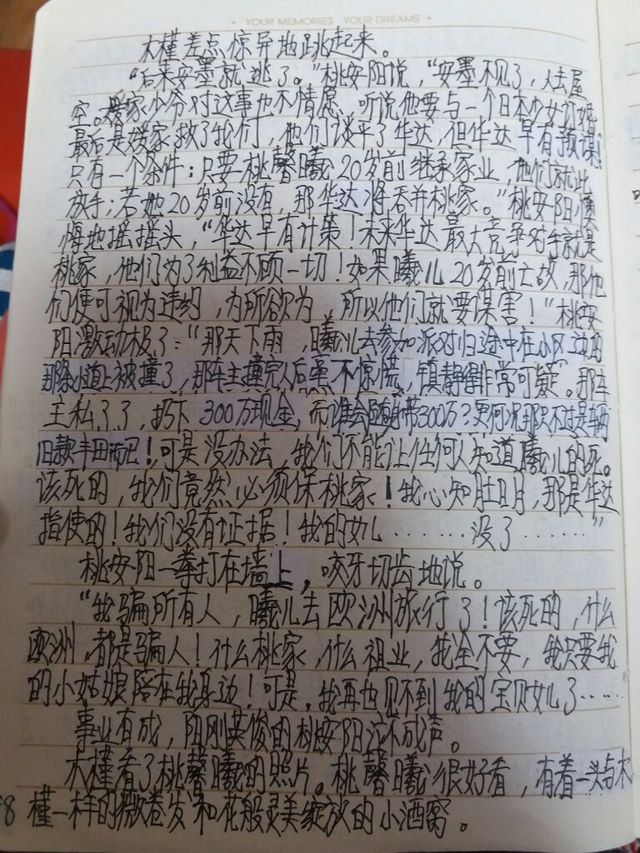 · YOUR MEMORIES YOUR DREAMS ·
木槿差点惊异地跳起来。
"后来安墨就逃了。"桃安阳说,"安墨不见了,人去屋
空。媄家少爷对这事也不情愿,听说他要与一个日本少女订婚
最后是媄家救了我们,他们谈平了华达,但华达早有预谋!
只有一个条件:只要桃馨曦20岁前继承家业,他们就此
放手;若她20岁前没有,那华达将吞并桃家。"桃安阳懊
悔地摇摇头,"华达早有计策!未来华达最大竞争对手就是
桃家,他们为了利益不顾一切!如果曦儿20岁前亡故,那他
们便可视为违约,为所欲为,所以他们就要谋害!"桃安
阳激动极了:"那天下雨,曦儿去参加派对归途中在小区边的
那条小道上被撞了,那车主撞完人后毫不惊慌,镇静得非常可疑。那车
主私了了,扔下300万现金,而谁会随身带300万?更何况那只不过是辆
旧款丰田而已!可是没办法,我们不能让任何人知道曦儿的死。
该死的,我们竟然必须保桃家!我心知肚明,那是华达
指使的!我们没有证据!我的女儿……没了……"
桃安阳一拳打在墙上,咬牙切齿地说。
"我骗所有人,曦儿去欧洲旅行了!该死的,什么
欧洲,都是骗人!什么桃家,什么祖业,我全不要,我只要我
的小姑娘陪在我身边!可是,我再也见不到我的宝贝女儿了……
事业有成,阳刚英俊的桃安阳泣不成声。
木槿看了桃馨曦的照片。桃馨曦很好看,有着一头与木
槿一样的微卷发和花般灵美绽放的小酒窝。